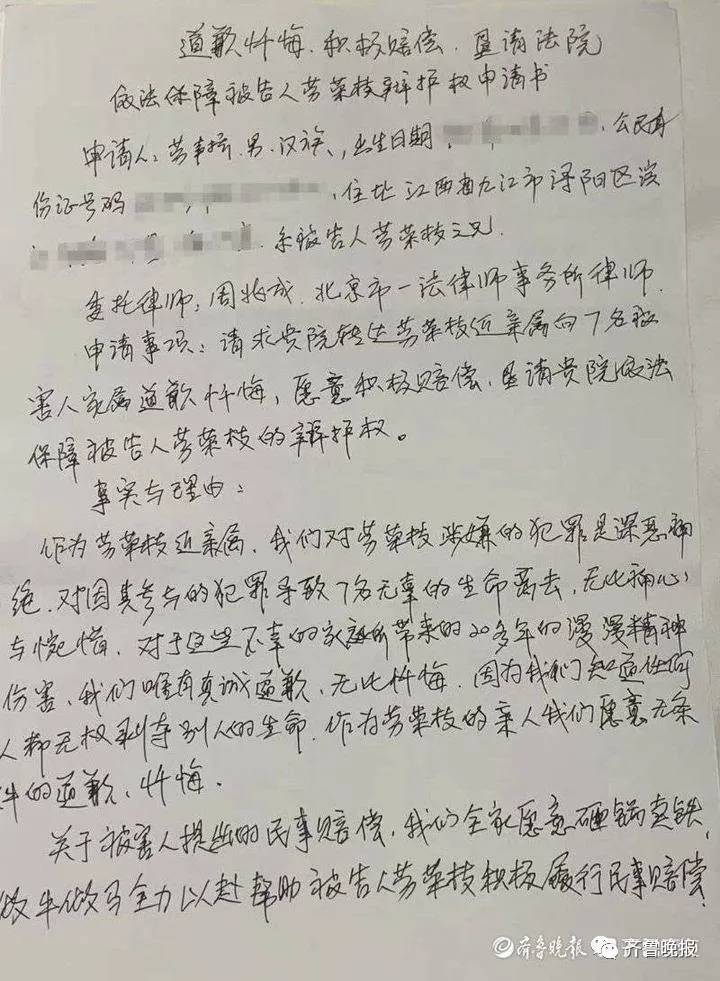 道歉忏悔、积极赔偿、恳请法院
依法保障被告人劳荣枝辩护权申请书
申请人：劳声桥，男，汉族，出生日期，公民身
份证号码，住址江西省九江市浔阳区滨
，系被告人劳荣枝之兄。
委托律师：周兆成，北京市一法律师事务所律师。
申请事项：请求贵院转达劳荣枝近亲属向7名被
害人家属道歉忏悔，愿意积极赔偿，恳请贵院依法
保障被告人劳荣枝的辩护权。
事实与理由：
作为劳荣枝近亲属，我们对劳荣枝涉嫌的犯罪是深恶痛
绝，对因其参与的犯罪导致7名无辜的生命离去，无比痛心
与惋惜，对于这些不幸的家庭所带来的20多年的漫漫精神
伤害，我们唯有真诚道歉，无比忏悔，因为我们知道任何
人都无权剥夺别人的生命，作为劳荣枝的亲人我们愿意无条
件的道歉、忏悔。
关于被害人提出的民事赔偿，我们全家愿意砸锅卖铁，
做牛做马全力以赴帮助被告人劳荣枝积极履行民事赔偿，
齐鲁晚报 齐鲁晚报